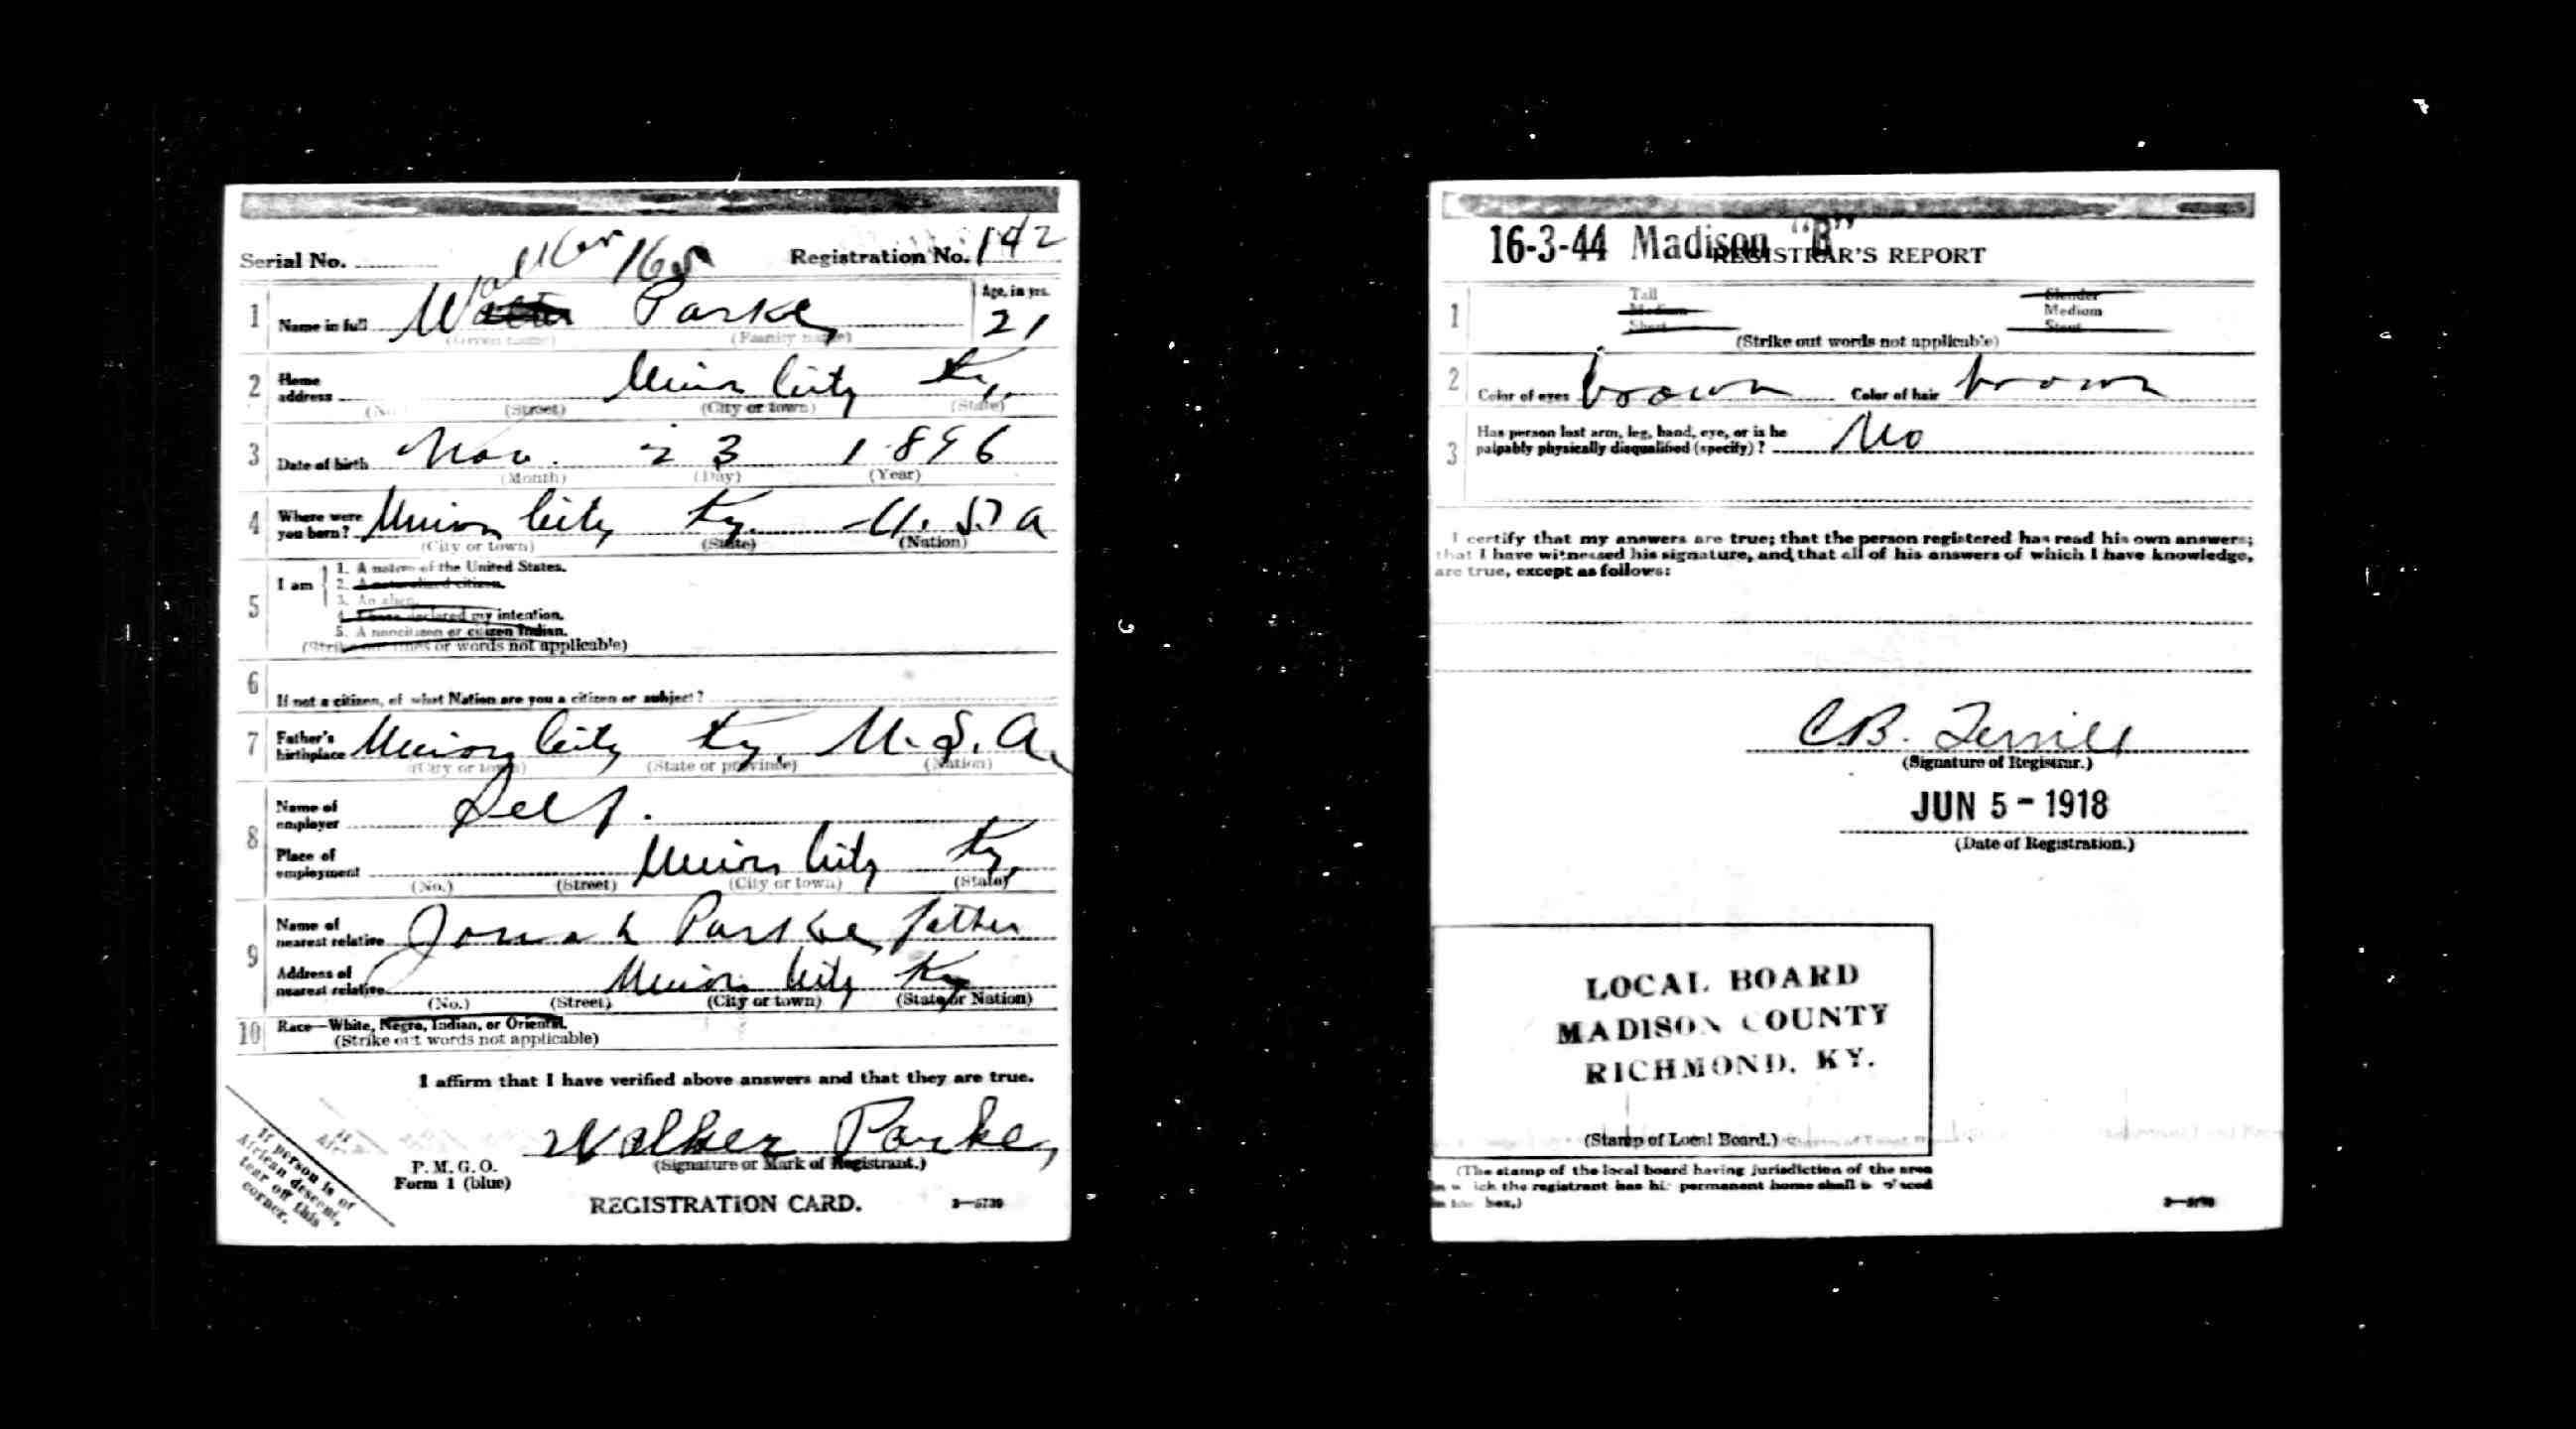 Serial No. Registration No. 142
Walker 168
1 Name in full Parke Age, in yrs. 21
(Given name) (Family name)
2 Home address Union City Ky.
(No.) (Street) (City or town) (State)
3 Date of birth Nov. 23 1896
(Month) (Day) (Year)
4 Where were you born? Union City Ky. U.S.A
(City or town) (State) (Nation)
5 I am
1. A native of the United States.
2. A naturalized citizen.
3. An alien.
4. I have declared my intention.
5. A noncitizen or citizen Indian.
(Strike out lines or words not applicable)
6 If not a citizen, of what Nation are you a citizen or subject?
7 Father's birthplace Union City Ky. U.S.A.
(City or town) (State or province) (Nation)
8 Name of employer Self.
Place of employment Union City Ky.
(No.) (Street) (City or town) (State)
9 Name of nearest relative Jonah Parke, father
Address of nearest relative Union City Ky
(No.) (Street) (City or town) (State or Nation)
10 Race—White, Negro, Indian, or Oriental.
(Strike out words not applicable)
I affirm that I have verified above answers and that they are true.
Walker Parke,
(Signature or Mark of Registrant.)
P. M. G. O.
Form 1 (blue)
REGISTRATION CARD.
If person is of
African descent,
tear off this
corner.
16-3-44 Madison "B"
REGISTRAR'S REPORT
1 Tall Slender
Medium Medium
Short Stout
(Strike out words not applicable)
2 Color of eyes brown Color of hair brown
3 Has person lost arm, leg, hand, eye, or is he
palpably physically disqualified (specify)? No
I certify that my answers are true; that the person registered has read his own answers;
that I have witnessed his signature, and that all of his answers of which I have knowledge,
are true, except as follows:
C.B. Terrill
(Signature of Registrar.)
JUN 5 - 1918
(Date of Registration.)
LOCAL BOARD
MADISON COUNTY
RICHMOND, KY.
(Stamp of Local Board.)
(The stamp of the local board having jurisdiction of the area
in which the registrant has his permanent home shall be placed
in this box.)